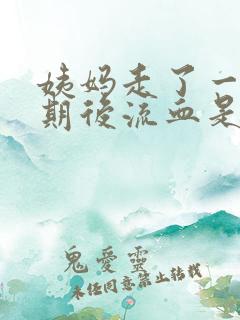 姨妈走了一
期後流血是
鬼愛靈
未任同意禁止转载